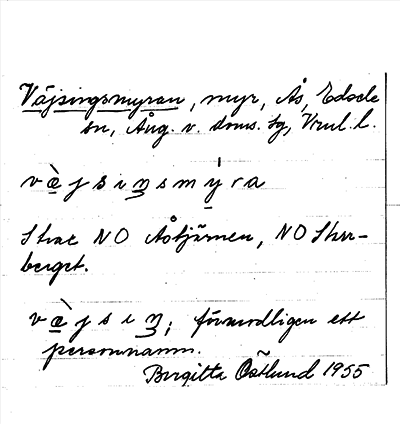 Väjsingsmyran, myr, Ås, Edsele
sn, Ång. v. doms. sg, Vrml. l.
væ̀jsiŋsmy̍ra
Strax NO Åstjärnen, NO Storr-
berget.
væ̀jsiŋ; förmodligen ett
personnamn.
Birgitta Östlund 1955